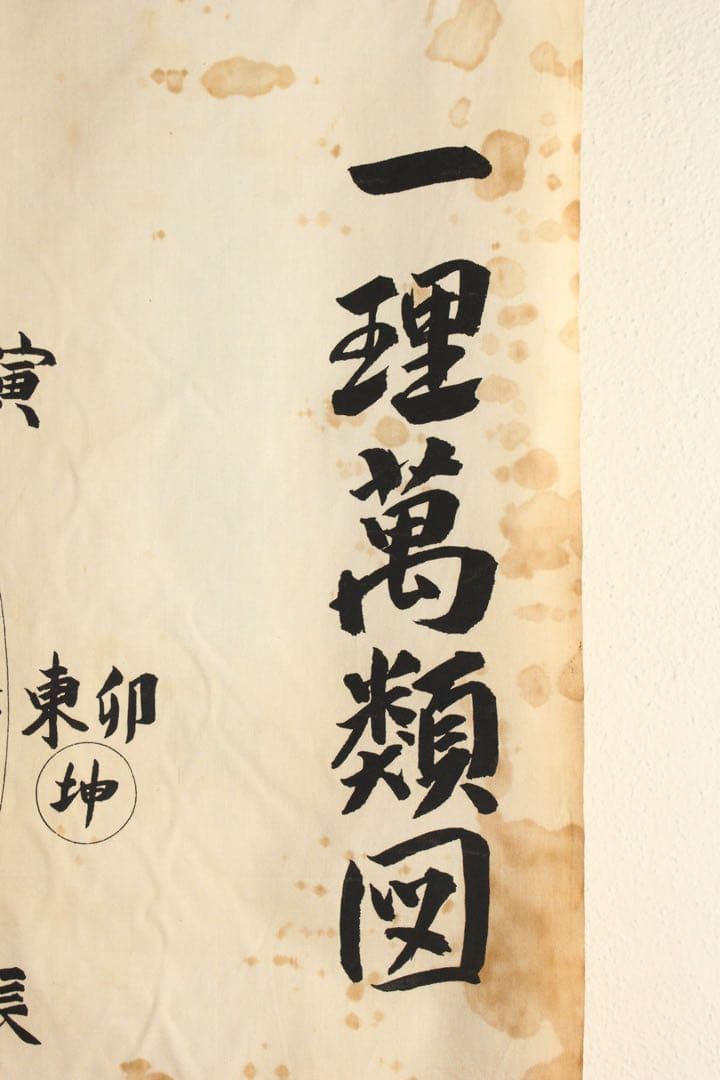 一理萬類図
寅
東卯
坤
辰